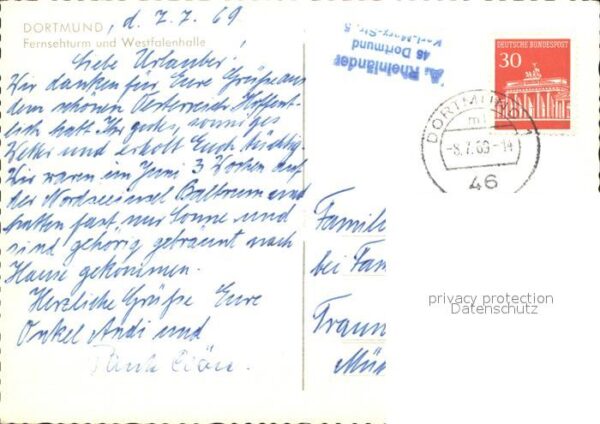 DORTMUND, d. 7.7.69
Fernsehturm und Westfalenhalle
Liebe Urlauber!
Wir danken für Eure Grüße aus
dem schönen Oesterreich. Hoffent-
lich habt Ihr gutes, sonniges
Wetter und erholt Euch tüchtig.
Wir waren im Juni 3 Wochen auf
der Nordseeinsel Baltrum und
hatten fast nur Sonne und
sind gehörig gebräunt nach
Hause gekommen.
Herzliche Grüße Eure
Onkel Andi und
A. Rheinländer
46 Dortmund
Karl-Marx-Str. 5
DEUTSCHE BUNDESPOST
30
DORTMUND 1
-8.7.69-14
46
Familie
bei Fam
Traun
Mü
privacy protection
Datenschutz